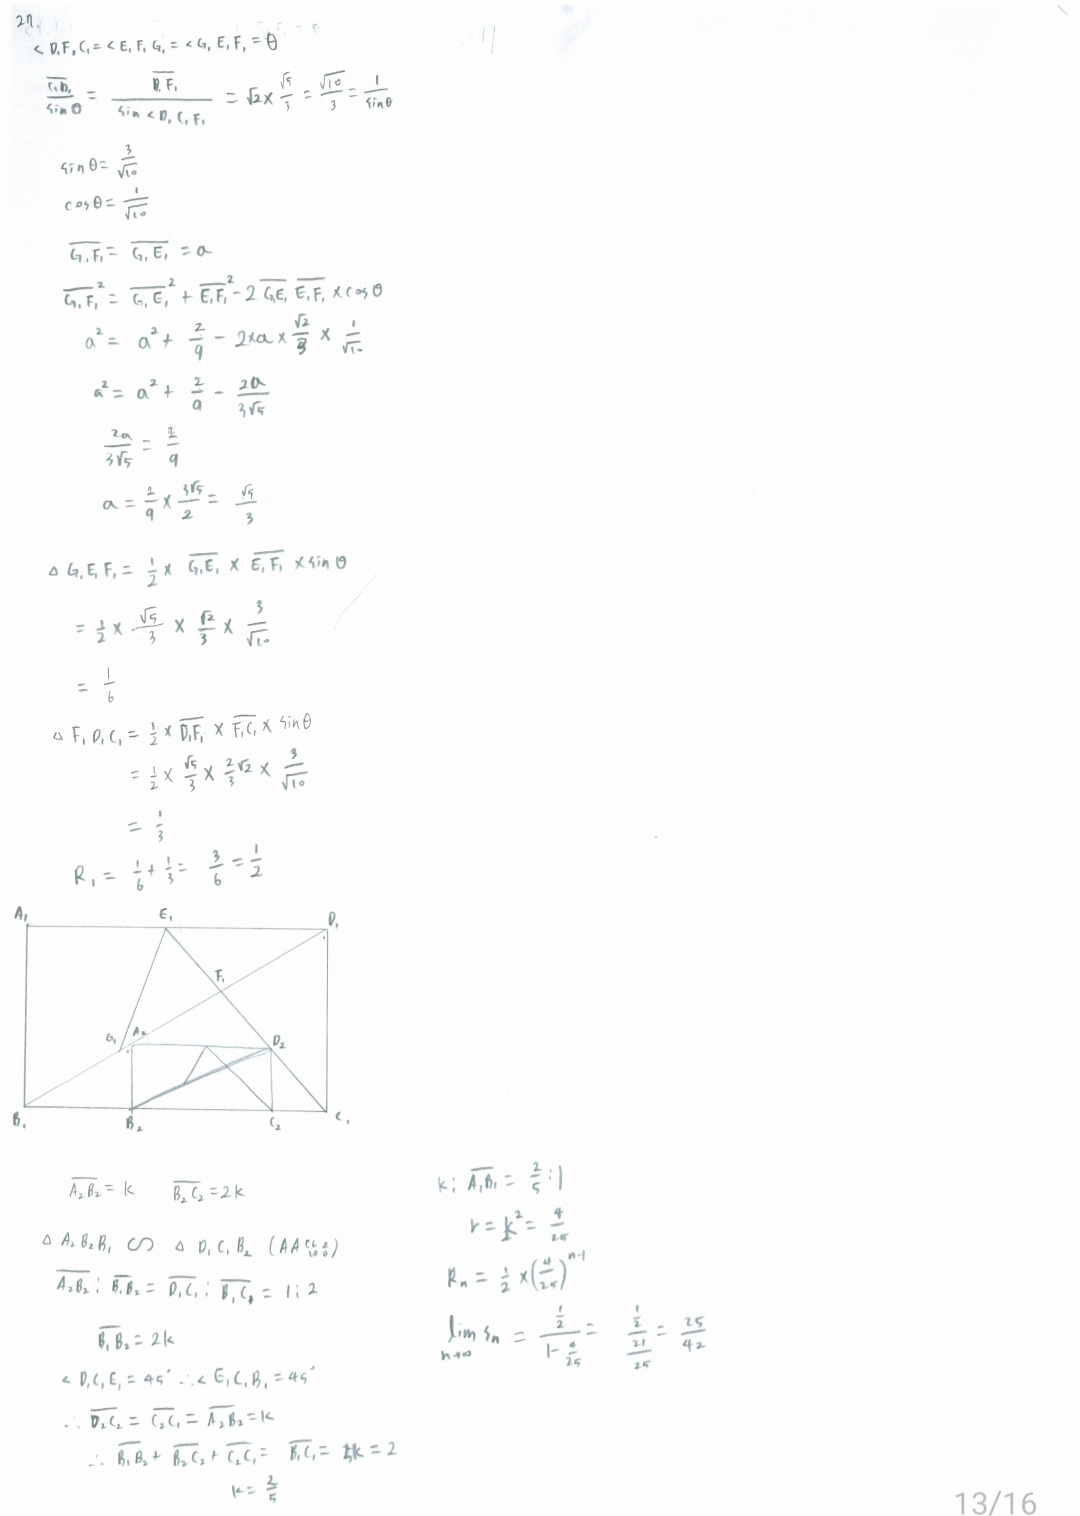 27.
< D₁F₁C₁ = < E₁F₁G₁ = < G₁E₁F₁ = θ
C₁D₁/sinθ = D₁F₁/sin<D₁C₁F₁ = √2 × √5/3 = √10/3 = 1/sinθ
sinθ = 3/√10
cosθ = 1/√10
G₁F₁ = G₁E₁ = a
G₁F₁² = G₁E₁² + E₁F₁² - 2 G₁E₁ E₁F₁ × cosθ
a² = a² + 2/9 - 2×a× √2/3 × 1/√10
a² = a² + 2/9 - 2a/3√5
2a/3√5 = 2/9
a = 2/9 × 3√5/2 = √5/3
△ G₁E₁F₁ = 1/2 × G₁E₁ × E₁F₁ × sinθ
= 1/2 × √5/3 × √2/3 × 3/√10
= 1/6
△ F₁D₁C₁ = 1/2 × D₁F₁ × F₁C₁ × sinθ
= 1/2 × √5/3 × 2/3 √2 × 3/√10
= 1/3
R₁ = 1/6 + 1/3 = 3/6 = 1/2
A₁ E₁ D₁
F₁
G₁ A₂ D₂
B₁ B₂ C₂ C₁
A₂B₂ = k B₂C₂ = 2k
△ A₂B₂B₁ ∽ △ D₁C₁B₂ (AA닮음)
A₂B₂ : B₁B₂ = D₁C₁ : B₁C₁ = 1:2
B₁B₂ = 2k
< D₁C₁E₁ = 45° ∴ < E₁C₁B₁ = 45°
∴ D₂C₂ = C₂C₁ = A₂B₂ = k
∴ B₁B₂ + B₂C₂ + C₂C₁ = B₁C₁ = 5k = 2
k = 2/5
k : A₁B₁ = 2/5 : 1
r = k² = 4/25
Rₙ = 1/2 × (4/25)ⁿ⁻¹
lim n→∞ Sₙ = (1/2)/(1 - 4/25) = (1/2)/(21/25) = 25/42
13/16